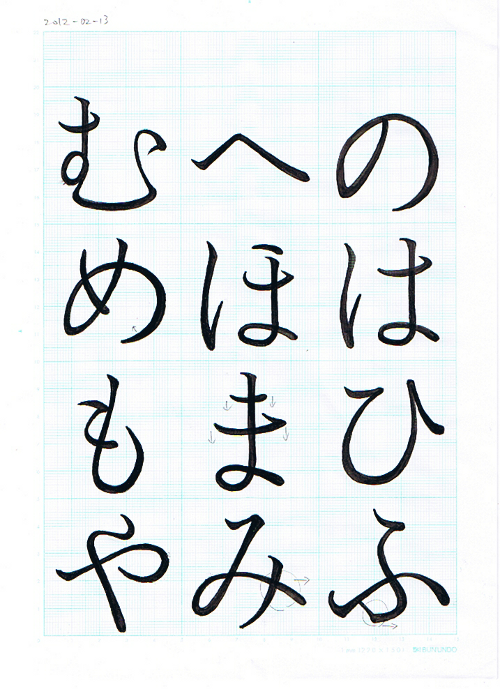 2012-02-13
のはひふ
へほまみ
むめもや